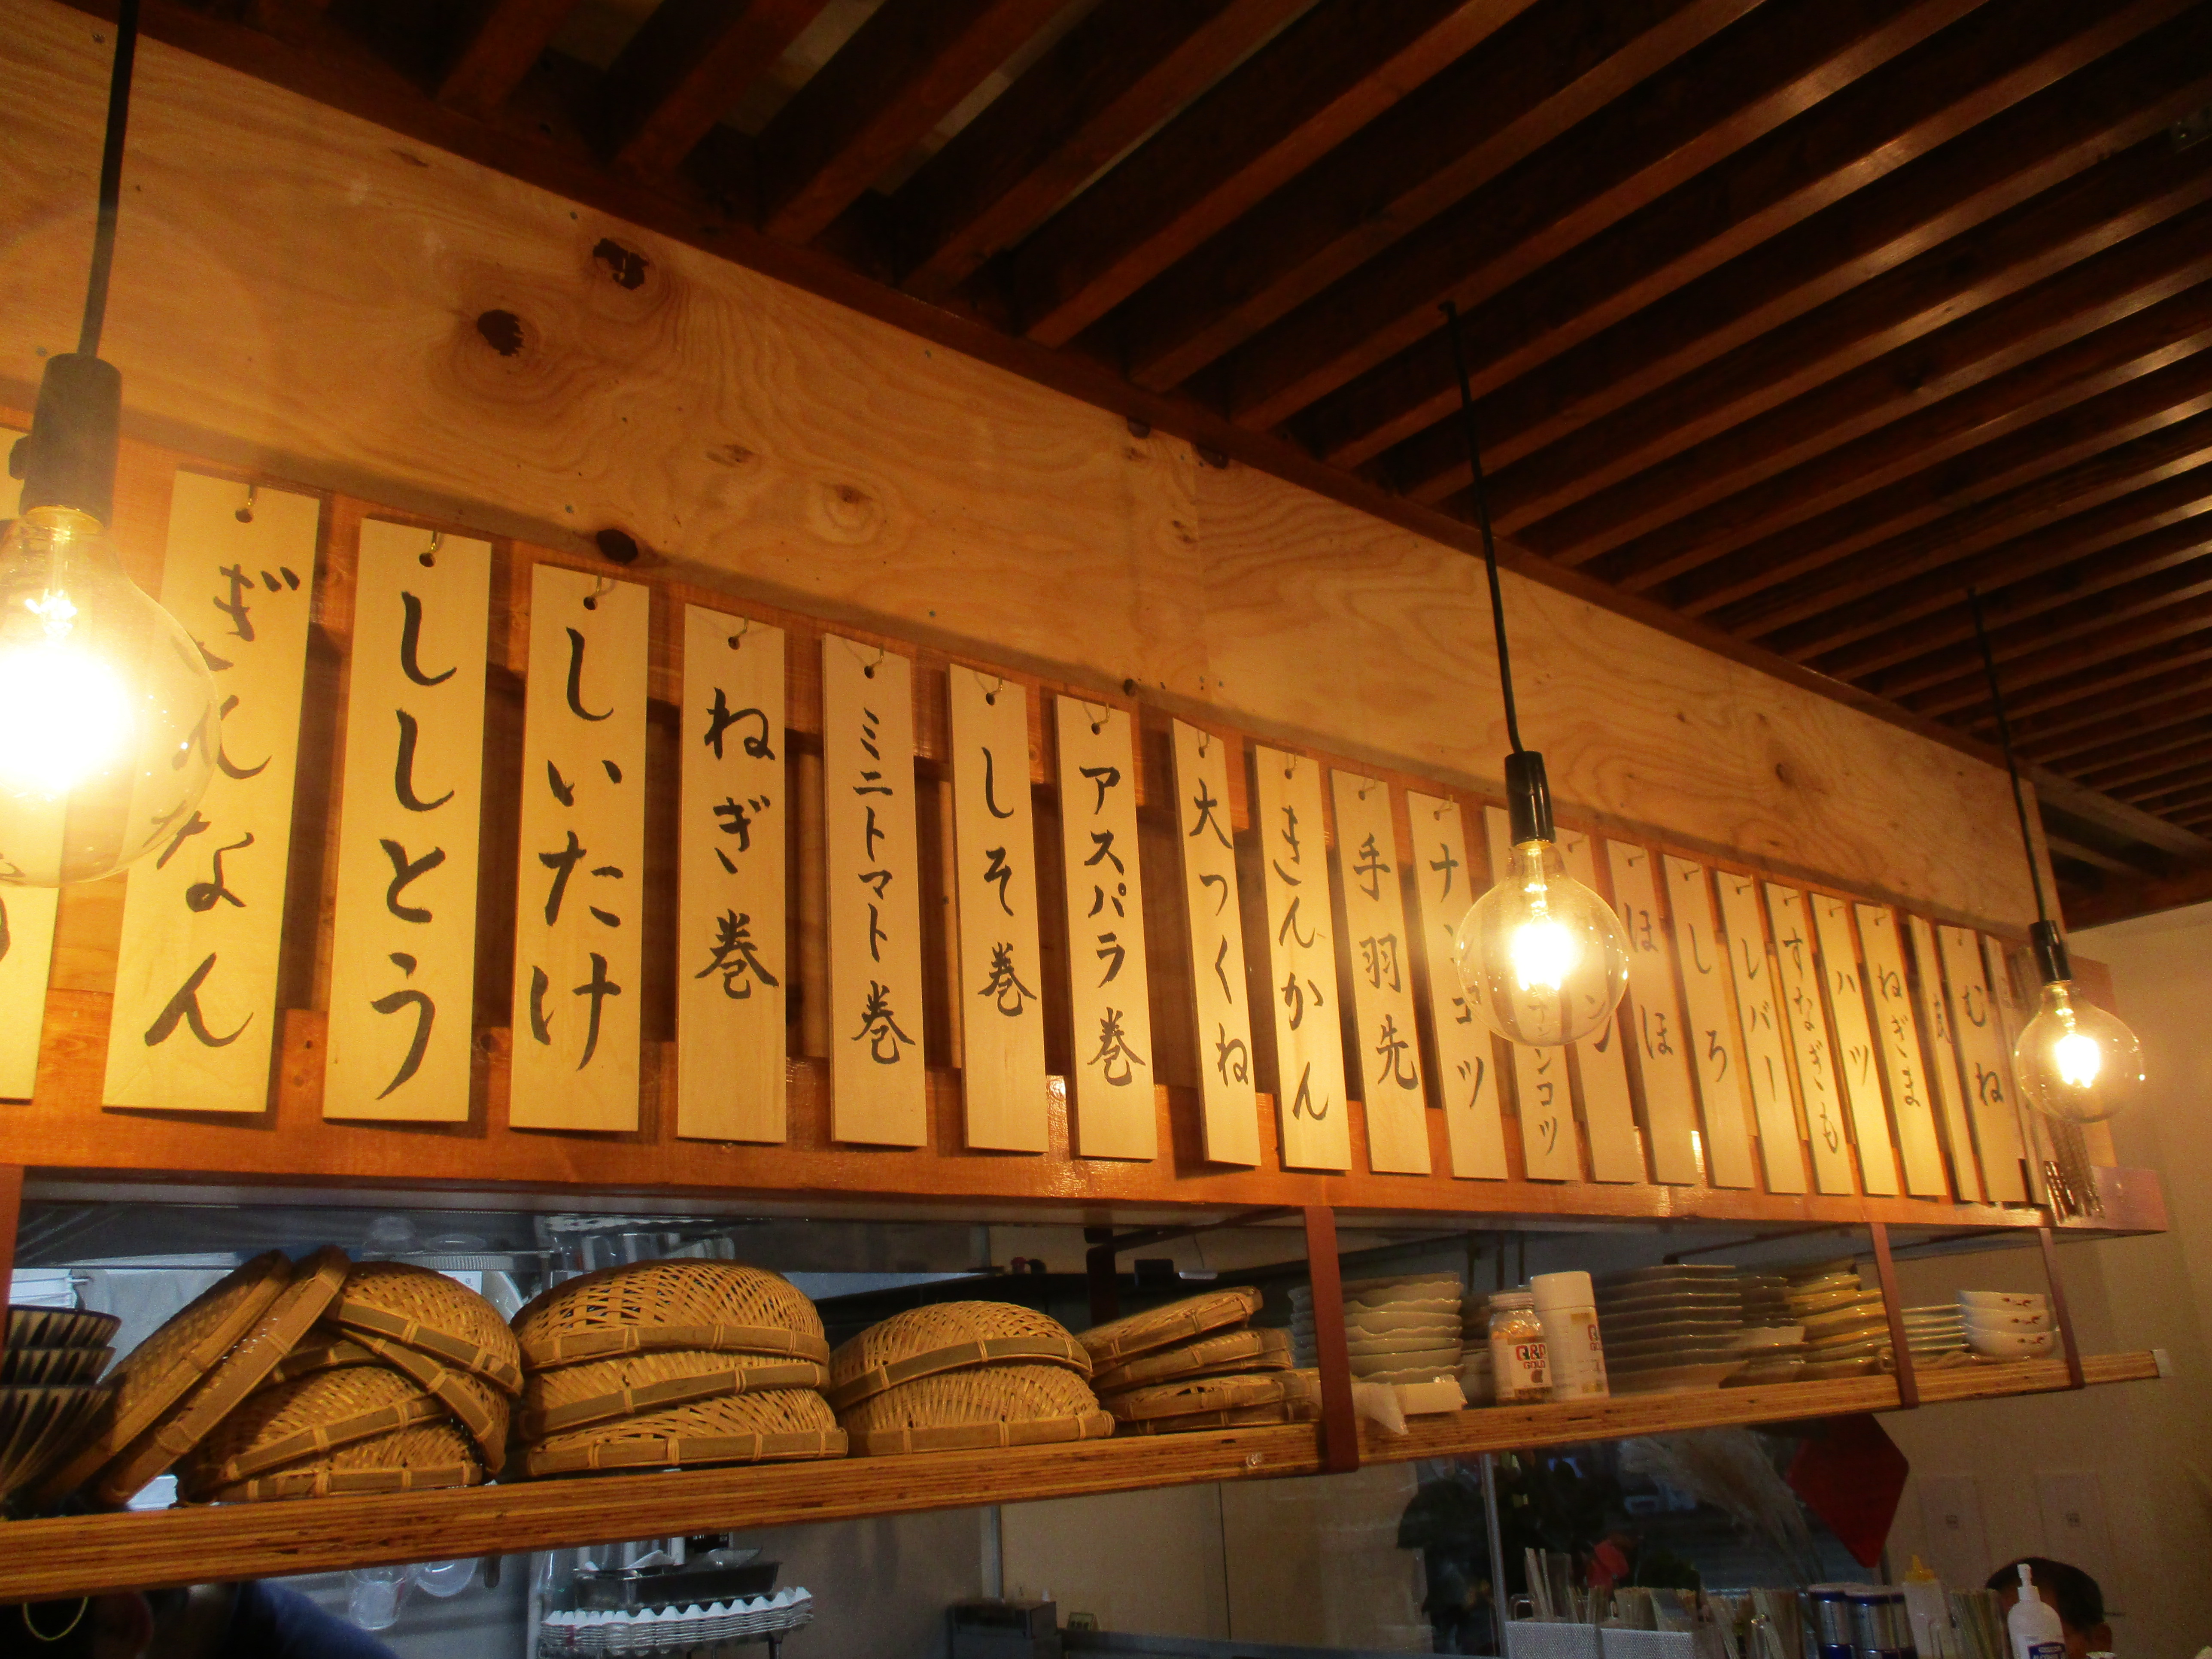 むね
ねぎま
ハツ
すなぎも
レバー
しろ
ほほ
ナンコツ
手羽先
きんかん
大つくね
アスパラ巻
しそ巻
ミニトマト巻
ねぎ巻
しいたけ
ししとう
ぎんなん
GOLD
GOLD